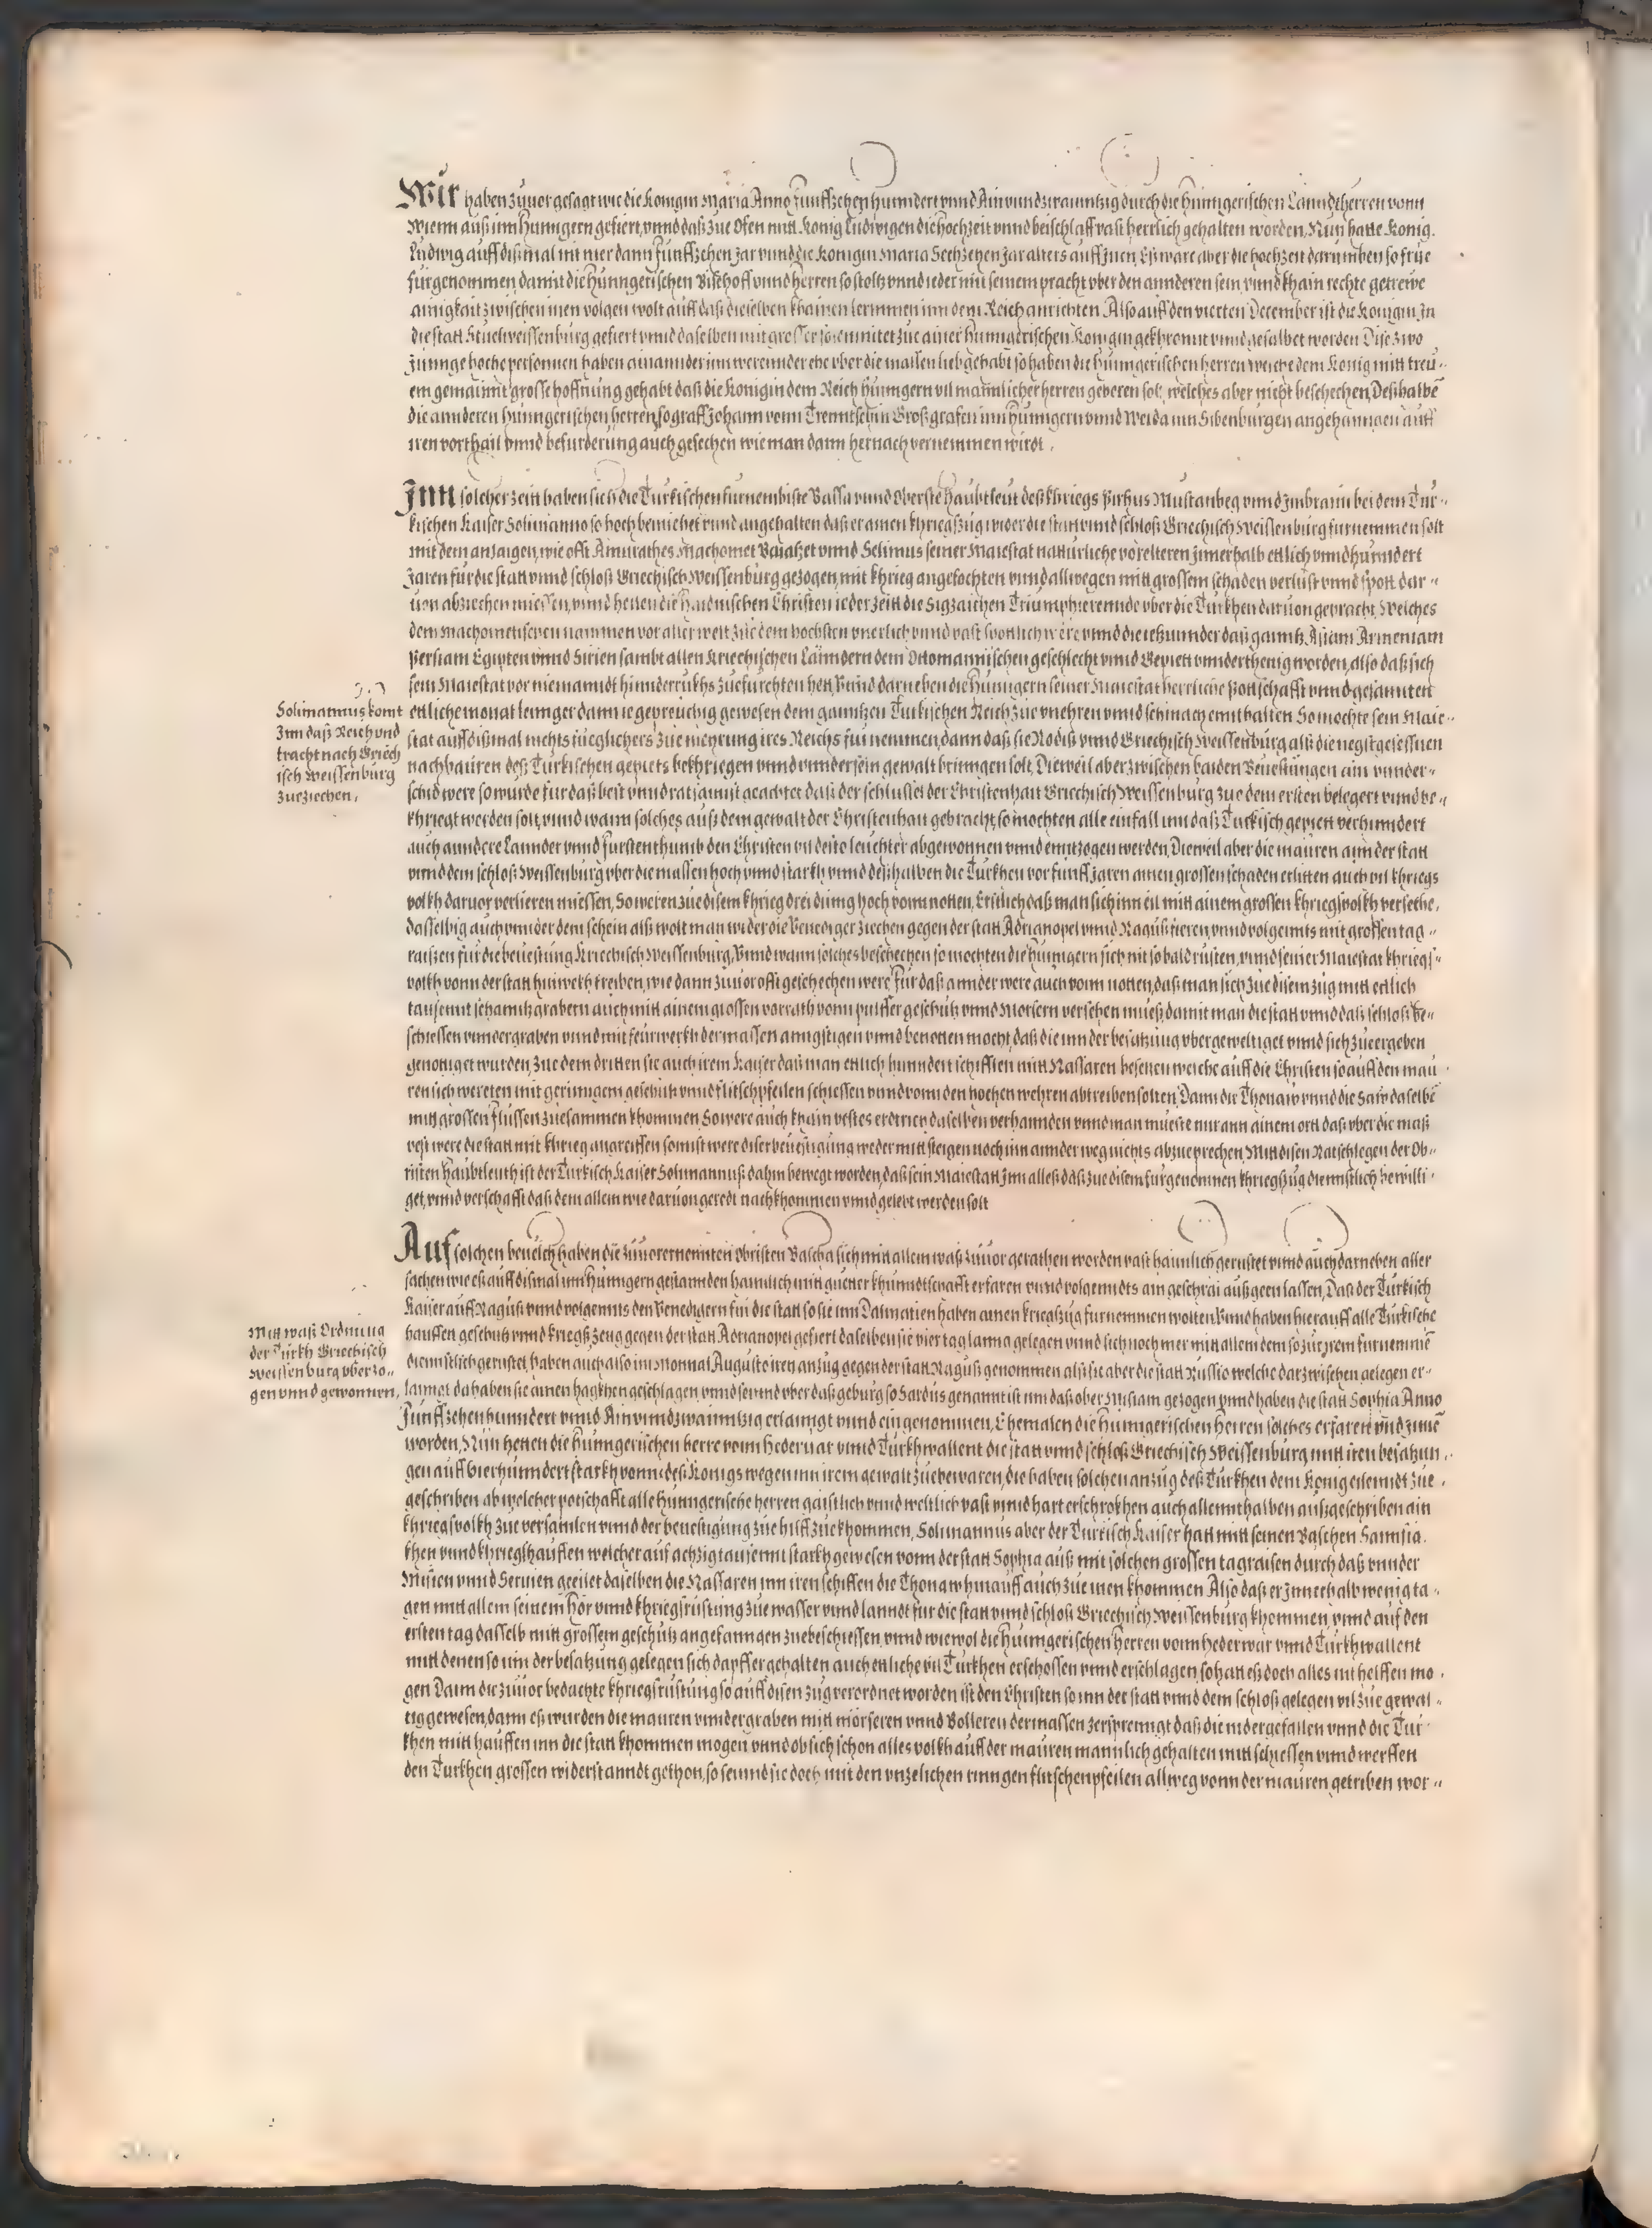 Wir haben zuuor gesagt wie die Konigin Maria Anno funffzehen hunndert vnnd Ainvndzwainntzig durch die Hunngerischen Lanndtherren vonn
Wienn auß inn Hunngern gefiert, vnnd daß zue Ofen mitt König Ludwigen die hochzeit vnnd beischlaff vast herrlich gehalten worden, Nun hatte König
Ludwig auff dißmal nit mer dann funffzehen Jar vnnd die Konigin Maria Sechzehen Jar alters auff Inen, Eß ware aber die hochzeit darumben so frue
furgenommen damit die Hunngerischen Bischoff vnnd herren so stoltz vnnd ieder mit seinem pracht vber den annderen sein vnnd khain rechte getrewe
ainigkait zwischen inen volgen wolt auff daß dieselben khainen lermmen inn dem Reich anrichten Also auff den vierten December ist die Konigin In
die statt Stuelweissenburg gefiert vnnd daselben mit grosser solemnitet zue ainer Hunngerischen Konigin gekhronnt vnnd gesalbet worden Dise zwo
Junnge hoche personnen haben ainannder inn werennder ehe vber die massen lieb gehabt so haben die Hunngerischen herren welche dem König mitt treu-
em gemainnt grosse hoffnung gehabt daß die Konigin dem Reich Hunngern vil mannlicher herren geberen solt, welches aber nicht beschechen, Deßhalbē
die annderen Hunngerischen herren so graff Johann vonn Trenntschin Großgrafen inn Hunngern vnnd Weida inn Sibenburgen angehanngen auff
iren vorthail vnnd befurderung auch gesechen wie man dann hernach vernemmen wirdt.
Inn solcher zeitt haben sich die Turkischen furnembste Bassa vnnd Oberste haubtleut deß khriegs Pirhus Mustanbeg vnnd Imbraim bei dem Tur-
kischen Kaiser Solimanno so hoch bemiehet vnnd angehalten daß er ainen khriegszug wider die statt vnnd schloß Griechisch Weissenburg furnemmen solt
mit dem anzaigen, wie offt Amurathes Machomet Baiahzet vnnd Selimus seiner Maiestat natturliche vorelteren Innerhalb ettlich vnnd hunndert
Jaren fur die statt vnnd schloß Griechisch Weissenburg gezogen, mit khrieg angefochten vnnd allwegen mitt grossem schaden verlust vnnd spott dar-
uon abziechen miessen, vnnd hetten die haidnischen Christen ieder zeitt die Sigzaichen Triumphierennde vber die Turkhen daruon gepracht Welches
dem Machometischen nammen vor aller welt zue dem hochsten vnerlich vnnd vast spotlich were vnnd die ietzunnder daß ganntz Asiam Armeniam
Persiam Egipten vnnd Sirien sambt allen Kriechischen Lanndern dem Ottomannischen geschlecht vnnd Gepiett vnnderthenig worden, also daß sich
sein Maiestat vor niemanndt hinnderrukhs zuefurchten hett, Vnnd darneben die Hunngern seiner Maiestat herrliche Pottschafft vnnd gesannten
Solimannus komt
Inn daß Reich vnd
tracht nach Griech
isch Weissenburg
zueziechen.
ettliche monat lennger dann ie gepreuchig gewesen dem ganntzen Turkischen Reich zue vnehren vnnd schmach ennthalten So mochte sein Maie-
stat auff dißmal nichts fueglichers zue mehrung ires Reichs fur nemmen, dann daß sie Rodiß vnnd Griechisch Weissenburg alß die negst gesessnen
nachbauren deß Turkischen gepiets bekhriegen vnnd vnnder sein gewalt bringen solt, Dieweil aber zwischen baiden Beuestungen ain vnnder-
schid were so wurde fur daß best vnnd ratsamist geachtet daß der schlussel der Christenhait Griechisch Weissenburg zue dem ersten belegert vnnd be-
khriegt werden solt, vnnd wann solches auß dem gewalt der Christenhait gebracht, so mochten alle einfall inn daß Turkisch gepiett verhinndert
auch anndere Lannder vnnd furstenthumb den Christen vil desto leuchter abgewonnen vnnd enntzogen werden, Dieweil aber die mauren ann der statt
vnnd dem schloß Weissenburg vber die massen hoch vnnd starkh vnnd deßhalben die Turkhen vor funff Jaren ainen grossen schaden erlitten auch vil khriegs
volkh daruor verlieren miessen, So weren zue disem khrieg drei ding hoch vonn notten, Erstlich daß man sich inn eil mitt ainem grossen khriegsvolkh versehe,
dasselbig auch vnnder dem schein alß wolt man wider die Venediger ziechen gegen der statt Adrianopel vnnd Raguß fieren, vnnd volgennts mit grossen tag-
raisen fur die beuestung Kriechisch Weissenburg, Vnnd wann solches beschechen so mochten die Hunngern sich nit so bald rusten, vnnd seiner Maiestat khriegs-
volkh vonn der statt hinwekh treiben, wie dann zuuor offt geschechen were Fur daß annder were auch vonn notten, daß man sich zue disem zug mitt ettlich
tausennt schanntzgrabern auch mitt ainem grossen vorrath vonn pulffer geschutz vnnd Morsern versehen mueß damit man die statt vnnd daß schloß be-
schiessen vnndergraben vnnd mit feurwerkh dermassen anngstigen vnnd benotten mocht, daß die inn der besatzung vbergeweltiget vnnd sich zueergeben
genottiget wurden, zue dem dritten sie auch irem Kaiser daß man ettlich hunndert schifften mitt Nassaren besetzt welche auff die Christen so auff den mau
ren sich wereten mit geringem geschutz vnnd flitschpfeilen schiessen vnnd vonn den hochen wehren abtreiben solten, Dann die Thonaw vnnd die Saw daselbē
mitt grossen flussen zuesammen khommen So were auch khain vestes erdtrich daselben verhannden vnnd man mueste nur ann ainem ortt daß vber die maß
vest were die statt mit khrieg angreiffen sonnst were diser beuestigung weder mitt steigen noch inn annder weg nichts abzueprechen, Mitt disen Ratschlegen der Ob-
risten Haubtleuth ist der Turkisch Kaiser Solimannus dahin bewegt worden, daß sein Maiestatt Inn alleß daß zue disem furgenommen khriegszug dienstlich bewilli-
get, vnnd verschafft daß dem allem wie daruon geredt nachkhommen vnnd gelebt werden solt
Auf solchen beuelch haben die zuuorernennten obristen Bascha sich mitt allem waß zuuor gerathen worden vast haimlich gerustet vnnd auch darneben aller
sachen wie eß auff dißmal inn Hunngern gestannden haimlich mitt guetter khunndtschafft erfaren vnnd volgenndts ain geschrai außgeen lassen, Daß der Turkisch
Kaiser auff Raguß vnnd volgennts den Venedigern fur die statt so sie inn Dalmatien haben ainen kriegszug furnemmen wolten, Vnnd haben hierauff alle Turkische
Mitt waß Ordnung
der Turkh Griechisch
Weissenburg vberzo-
gen vnnd gewonnen,
hauffen geschutz vnnd kriegßzeug gegen der statt Adrianopel gefiert daselben sie vier tag lanng gelegen vnnd sich noch mer mitt allem dem so zu irem furnemmē
diennstlich gerustet, haben auch also im Monnat Auguste iren anzug gegen der statt Raguß genommen alß sie aber die statt Russio welche darzwischen gelegen er-
lannget da haben sie ainen hagkhen geschlagen vnnd seinnd vber daß geburg so Sardus genannt ist inn daß ober Misiam gezogen vnnd haben die statt Sophia Anno
Funffzehenhunndert vnnd Ainvnndzwainntzig erlanngt vnnd eingenommen, Ehemalen die Hunngerischen herren solches erfaren vnd Innē
worden, Nun hetten die Hunngerischen herre vonn Hederuar vnnd Turkhwallent die statt vnnd schloß Griechisch Weissenburg mitt iren besatzun-
gen auff Vierhunndert starkh vonn deß Königs wegen inn irem gewalt zuebewaren, die haben solchen anzug deß Turkhen dem König eilenndt zue-
geschriben ab welcher potschafft alle Hunngerische herren gaistlich vnnd weltlich vast vnnd hart erschrokhen auch allennthalben außgeschriben ain
khriegsvolkh zue versamlen vnnd der beuestigung zue hilff zuekhommen, Solimannus aber der Turkisch Kaiser hatt mitt seinen Baschen Sannsia-
khen vnnd khriegßhauffen welcher auf achzig tausennt starkh gewesen vonn der statt Sophia auß mit solchen grossen tagraisen durch daß vnnder
Misien vnnd Seruien geeilet daselben die Nassaren inn iren schiffen die Thonaw hinauff auch zue inen khommen Also daß er Innerhalb wenig ta-
gen mitt allem seinem hör vnnd khriegsrustung zue wasser vnnd lanndt fur die statt vnnd schloß Griechisch Weissenburg khommen, vnnd auf den
ersten tag dasselb mitt grossem geschutz angefanngen zuebeschiessen, vnnd wiewol die Hunngerischen herren vonn Hederwar vnnd Turkhwallent
mitt denen so inn der besatzung gelegen sich dapffer gehalten auch ettliche vil Turkhen erschossen vnnd erschlagen so hatt eß doch alles nit helffen mo-
gen Dann die zuuor bedachte khriegsrustung so auff disen zug verordnet worden ist den Christen so inn der statt vnnd dem schloß gelegen vil zue gewal-
tig gewesen, dann eß wurden die mauren vnndergraben mitt mörseren vnnd Bolleren dermassen zersprenngt daß die nidergefallen vnnd die Tur-
khen mitt hauffen inn die statt khommen mogen vnnd ob sich schon alles volkh auff der mauren mannlich gehalten mitt schiessen vnnd werffen
den Turkhen grossen widerstanndt gethon, so seinnd sie doch mit den vnzelichen ringen flitschenpfeilen allweg vonn der mauren getriben wor-